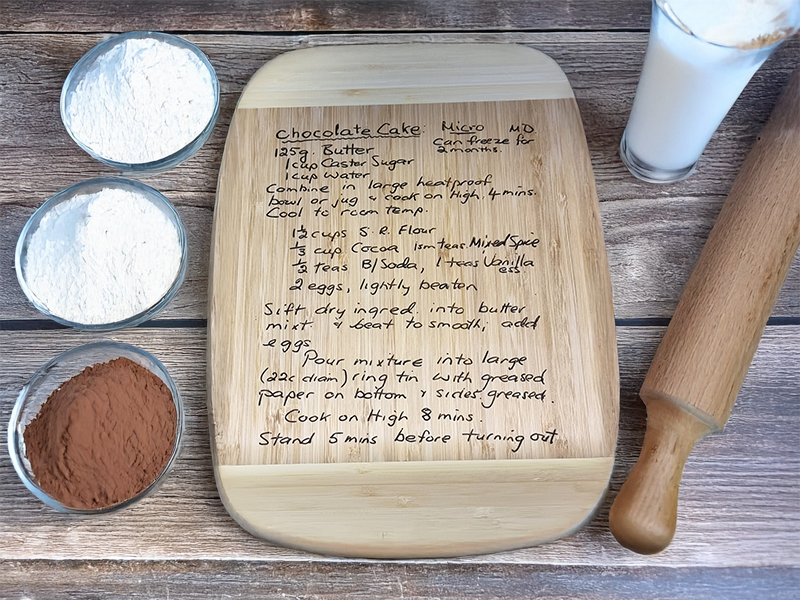 Chocolate Cake: Micro MD
Can freeze for
2 months.
125g. Butter
1 cup Caster Sugar
1 cup water
Combine in large heatproof
bowl or jug & cook on High 4 mins.
Cool to room temp.
1½ cups S. R. Flour
⅓ cup Cocoa 1 sm teas Mixed Spice
½ teas B/Soda, 1 teas Vanilla
ess
2 eggs, lightly beaten
Sift dry ingred. into butter
mixt. & beat to smooth, add
eggs
Pour mixture into large
(22c diam) ring tin with greased
paper on bottom & sides greased.
Cook on High 8 mins.
Stand 5 mins before turning out